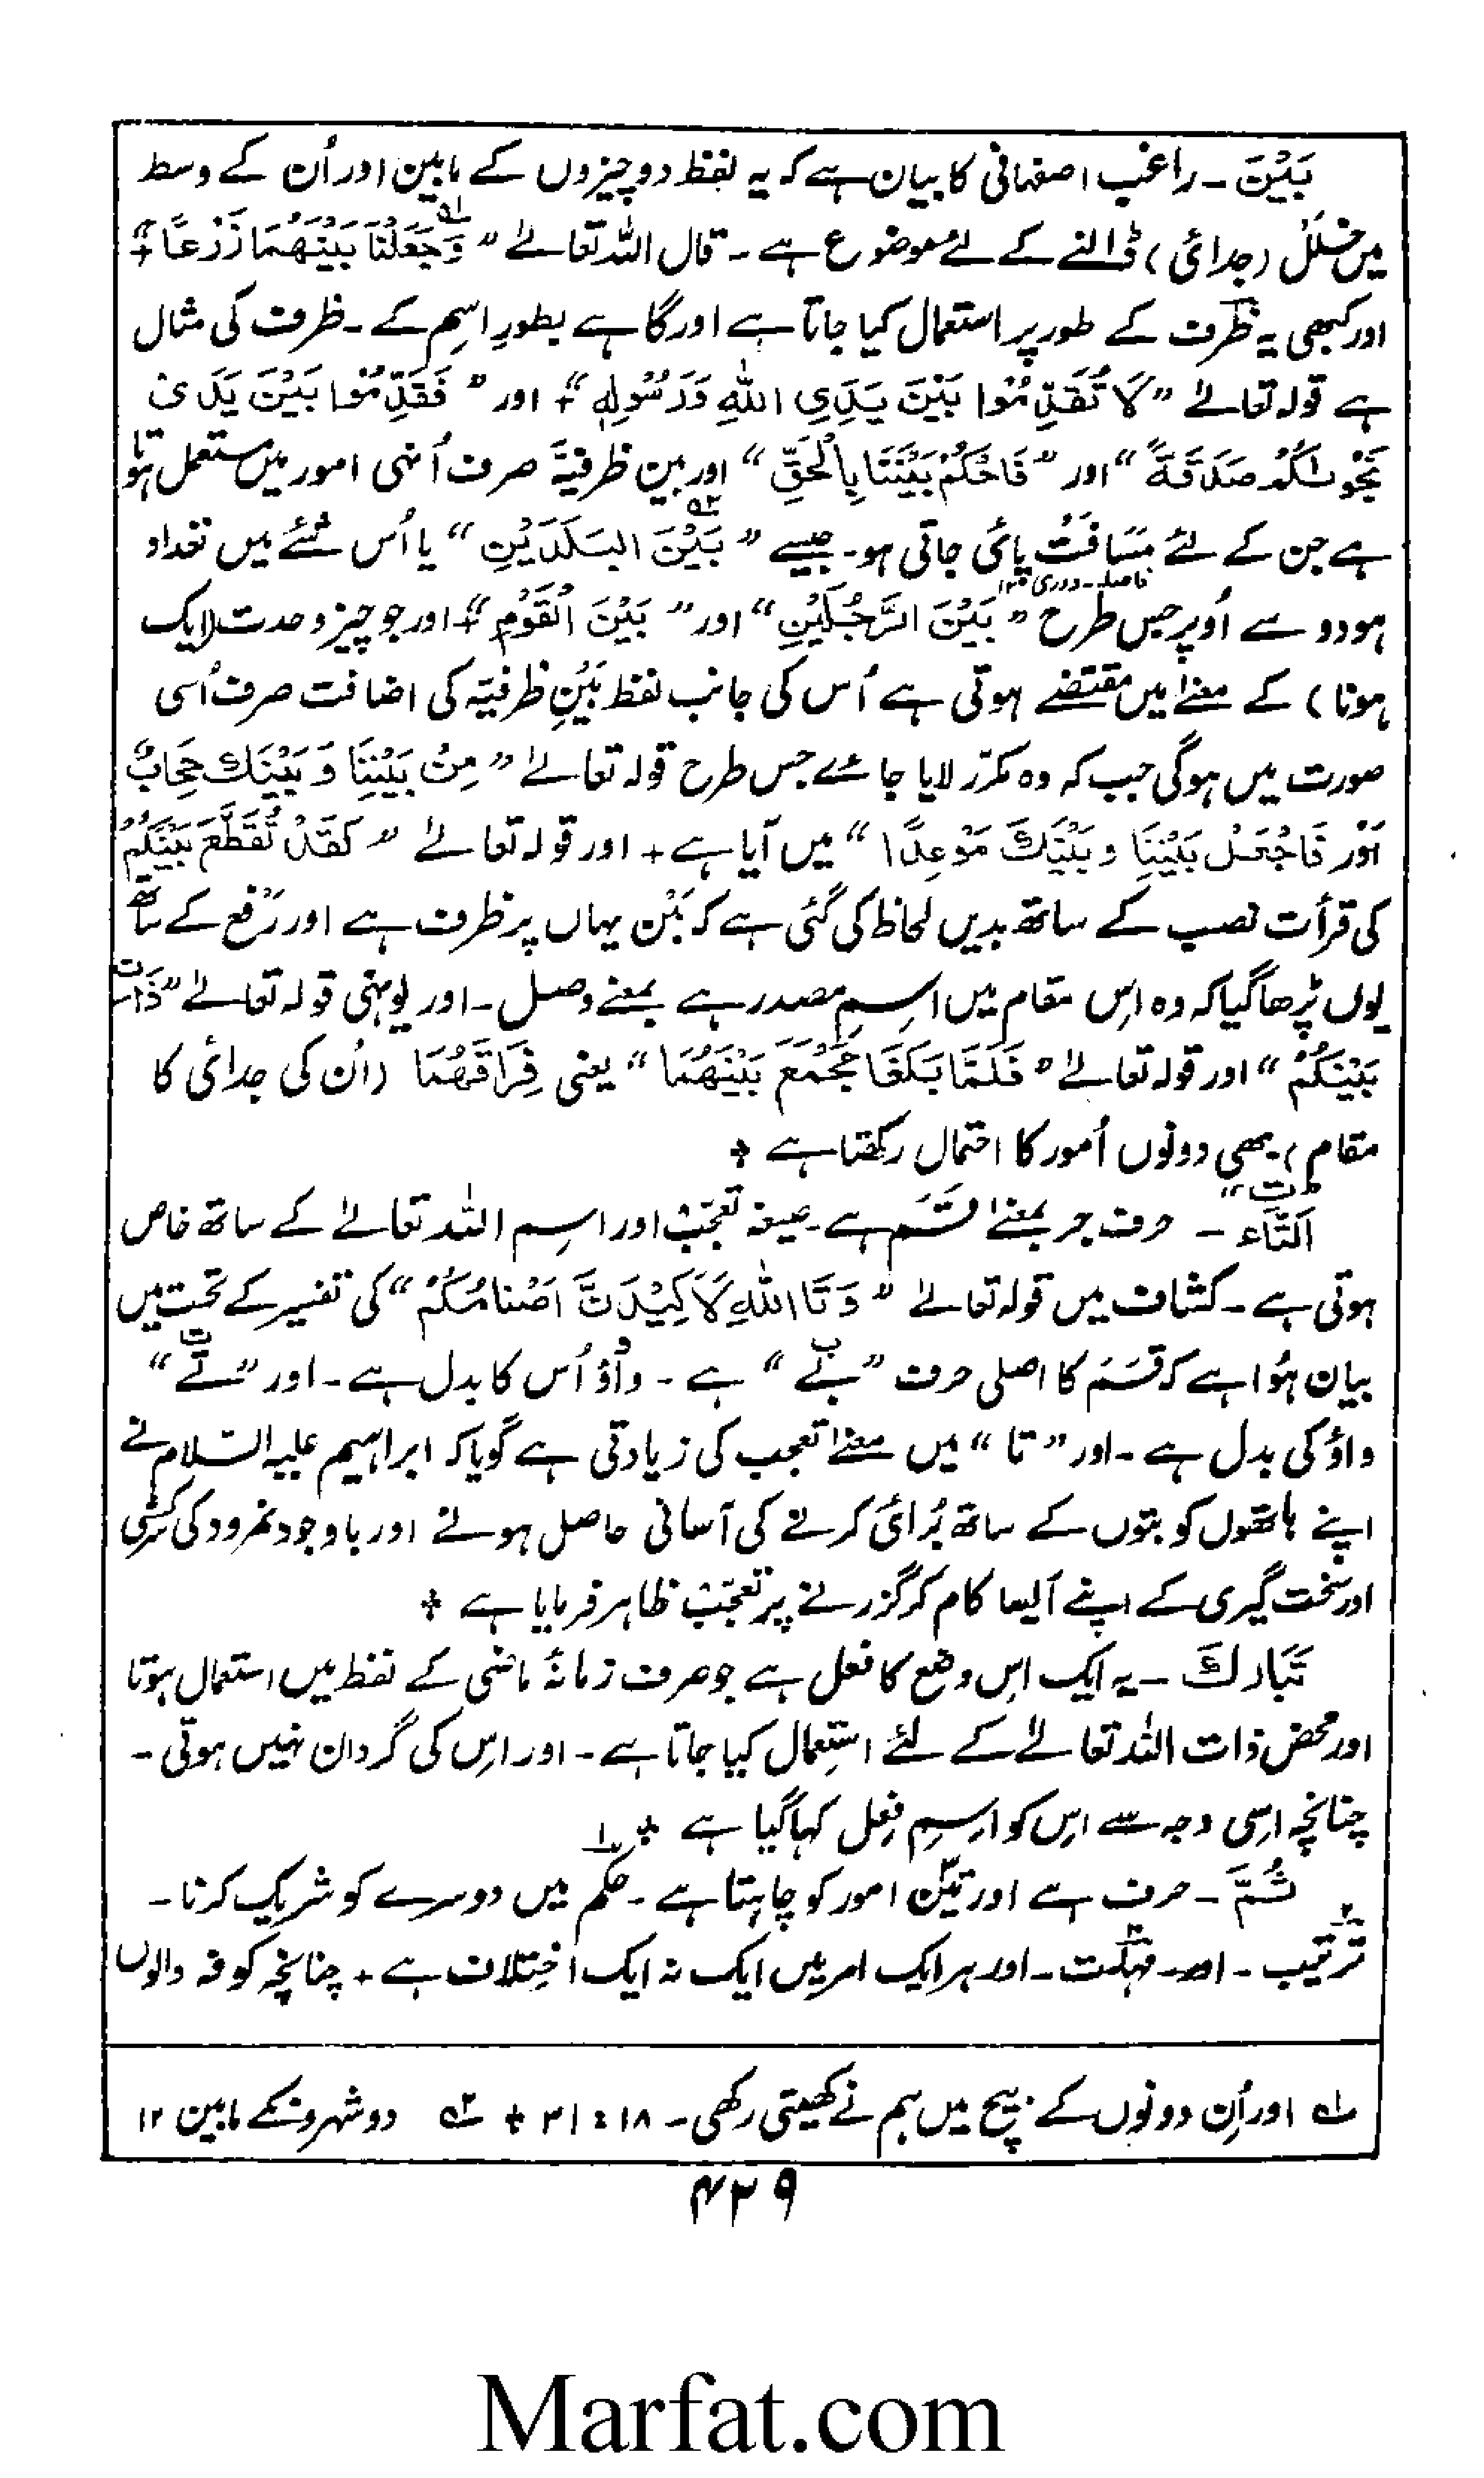 بَیْنَ ۔ راغب اصفہانی کا بیان ہے کہ یہ لفظ دو چیزوں کے مابین اور اُن کے وسط
میں خلل (جدائی) ڈالنے کے لئے موضوع ہے ۔ قال اللہ تعالےٰ ”وَجَعَلْنَا بَیْنَھُمَا زَرْعًا“ ؎۱ +
اور کبھی یہ ظرف کے طور پر استعمال کیا جاتا ہے اور گاہے بطورِ اسِم کے ۔ ظرف کی مثال
ہے قولہ تعالےٰ ”لَا تُقَدِّمُوْا بَیْنَ یَدَیِ اللّٰهِ وَرَسُوْلِهٖ“ + اور ”فَقَدِّمُوْا بَیْنَ یَدَیْ
نَجْوٰىكُمْ صَدَقَةً“ اور ”فَاحْكُمْ بَیْنَنَا بِالْحَقِّ“ اور بین ظرفیۃً صرف اُنہی امور میں مستعمل ہوتا
ہے جن کے لئے مَسَافَتْ پائی جاتی ہو ۔ جیسے ”بَیْنَ الْبَلَدَیْنِ“ ؎۲ یا اُس شئے میں تعداد
فاصلہ ۔ دوری ۱۲
ہو دو سے اُوپر جس طرح ”بَیْنَ الرَّجُلَیْنِ“ اور ”بَیْنَ الْقَوْمِ“ + اور جو چیز وحدت (ایک
ہونا) کے معنےٰ میں مقتضے ہوتی ہے اُس کی جانب لفظ بَیْنِ ظرفیّہ کی اضافت صرف اُسی
صورت میں ہوگی جب کہ وہ مکرّر لایا جائے جس طرح قولہ تعالےٰ ”مِنْ بَیْنِنَا وَبَیْنِكَ حِجَابٌ“
اور فَاجْعَلْ بَیْنَنَا وَبَیْنَكَ مَوْعِدًا“ میں آیا ہے + اور قولہ تعالےٰ ”لَقَدْ تَقَطَّعَ بَیْنَكُمْ“
کی قرأت نصب کے ساتھ بدیں لحاظ کی گئی ہے کہ بَیْن یہاں پر ظرف ہے اور رَفع کے ساتھ
یوں پڑھا گیا کہ وہ اسِ مقام میں اسمِ مصدر ہے بمعنے وصل ۔ اور یوہنی قولہ تعالےٰ ”ذَاتَ
بَیْنِكُمْ“ اور قولہ تعالےٰ ”فَلَمَّا بَلَغَا مَجْمَعَ بَیْنِهِمَا“ یعنی فِرَاقَهُمَا (اُن کی جدائی کا
مقام) بھی دونوں اُمور کا احتمال رکھتا ہے +
”ت“
اَلتَّاء ۔ حرف جر بمعنےٰ قَسَم ہے ۔ صیغہ تعجّب اور اسم اللہ تعالےٰ کے ساتھ خاص
ہوتی ہے ۔ کشاف میں قولہ تعالےٰ ”وَتَاللّٰهِ لَاَكِیْدَنَّ اَصْنَامَكُمْ“ کی تفسیر کے تحت میں
بیان ہُوا ہے کہ قَسَمْ کا اصلی حرف ”بے“ ب ہے ۔ واؤ اُس کا بدل ہے ۔ اور ”تے“ ت
واؤ کی بدل ہے ۔ اور ”تا“ میں معنےٰ تعجب کی زیادتی ہے گویا کہ ابراہیم علیہ السّلام نے
اپنے ہاتھوں کو بتوں کے ساتھ بُرائی کرنے کی آسانی حاصل ہونے اور باوجود نمرود کی سرکشی
اور سخت گیری کے اپنے اَیسا کام کر گزرنے پر تعجّب ظاہر فرمایا ہے +
تَبَارَكَ ۔ یہ ایک اسِ وضع کا فعل ہے جو صرف زمانۂ ماضی کے لفظ میں استعمال ہوتا
اور محض ذات اللہ تعالےٰ کے لئے اسَتِعمال کیا جاتا ہے ۔ اور اسِ کی گردان نہیں ہوتی ۔
چنانچہ اسِی وجہ سے اسِ کو اسِمِ فِعل کہا گیا ہے +
ثُمَّ ۔ حرف ہے اور تین امور کو چاہتا ہے ۔ ۱ حُکم میں دوسرے کو شریک کرنا ۔
۲ ترتیب ۔ اور ۳ مُہلت ۔ اور ہر ایک امر میں ایک نہ ایک اخِتلاف ہے + چنانچہ کوفہ والوں
؎۱ اور اُن دونوں کے بیچ میں ہم نے کھیتی رکھی ۔ ۱۸ : ۳۱ + ؎۲ دو شہرونکے مابین ۱۲
۴۳۹
Marfat.com